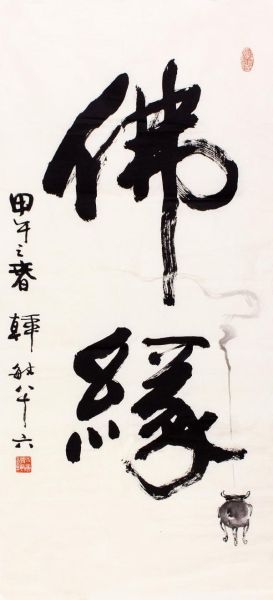 佛緣
甲午之春 韓敏八十六